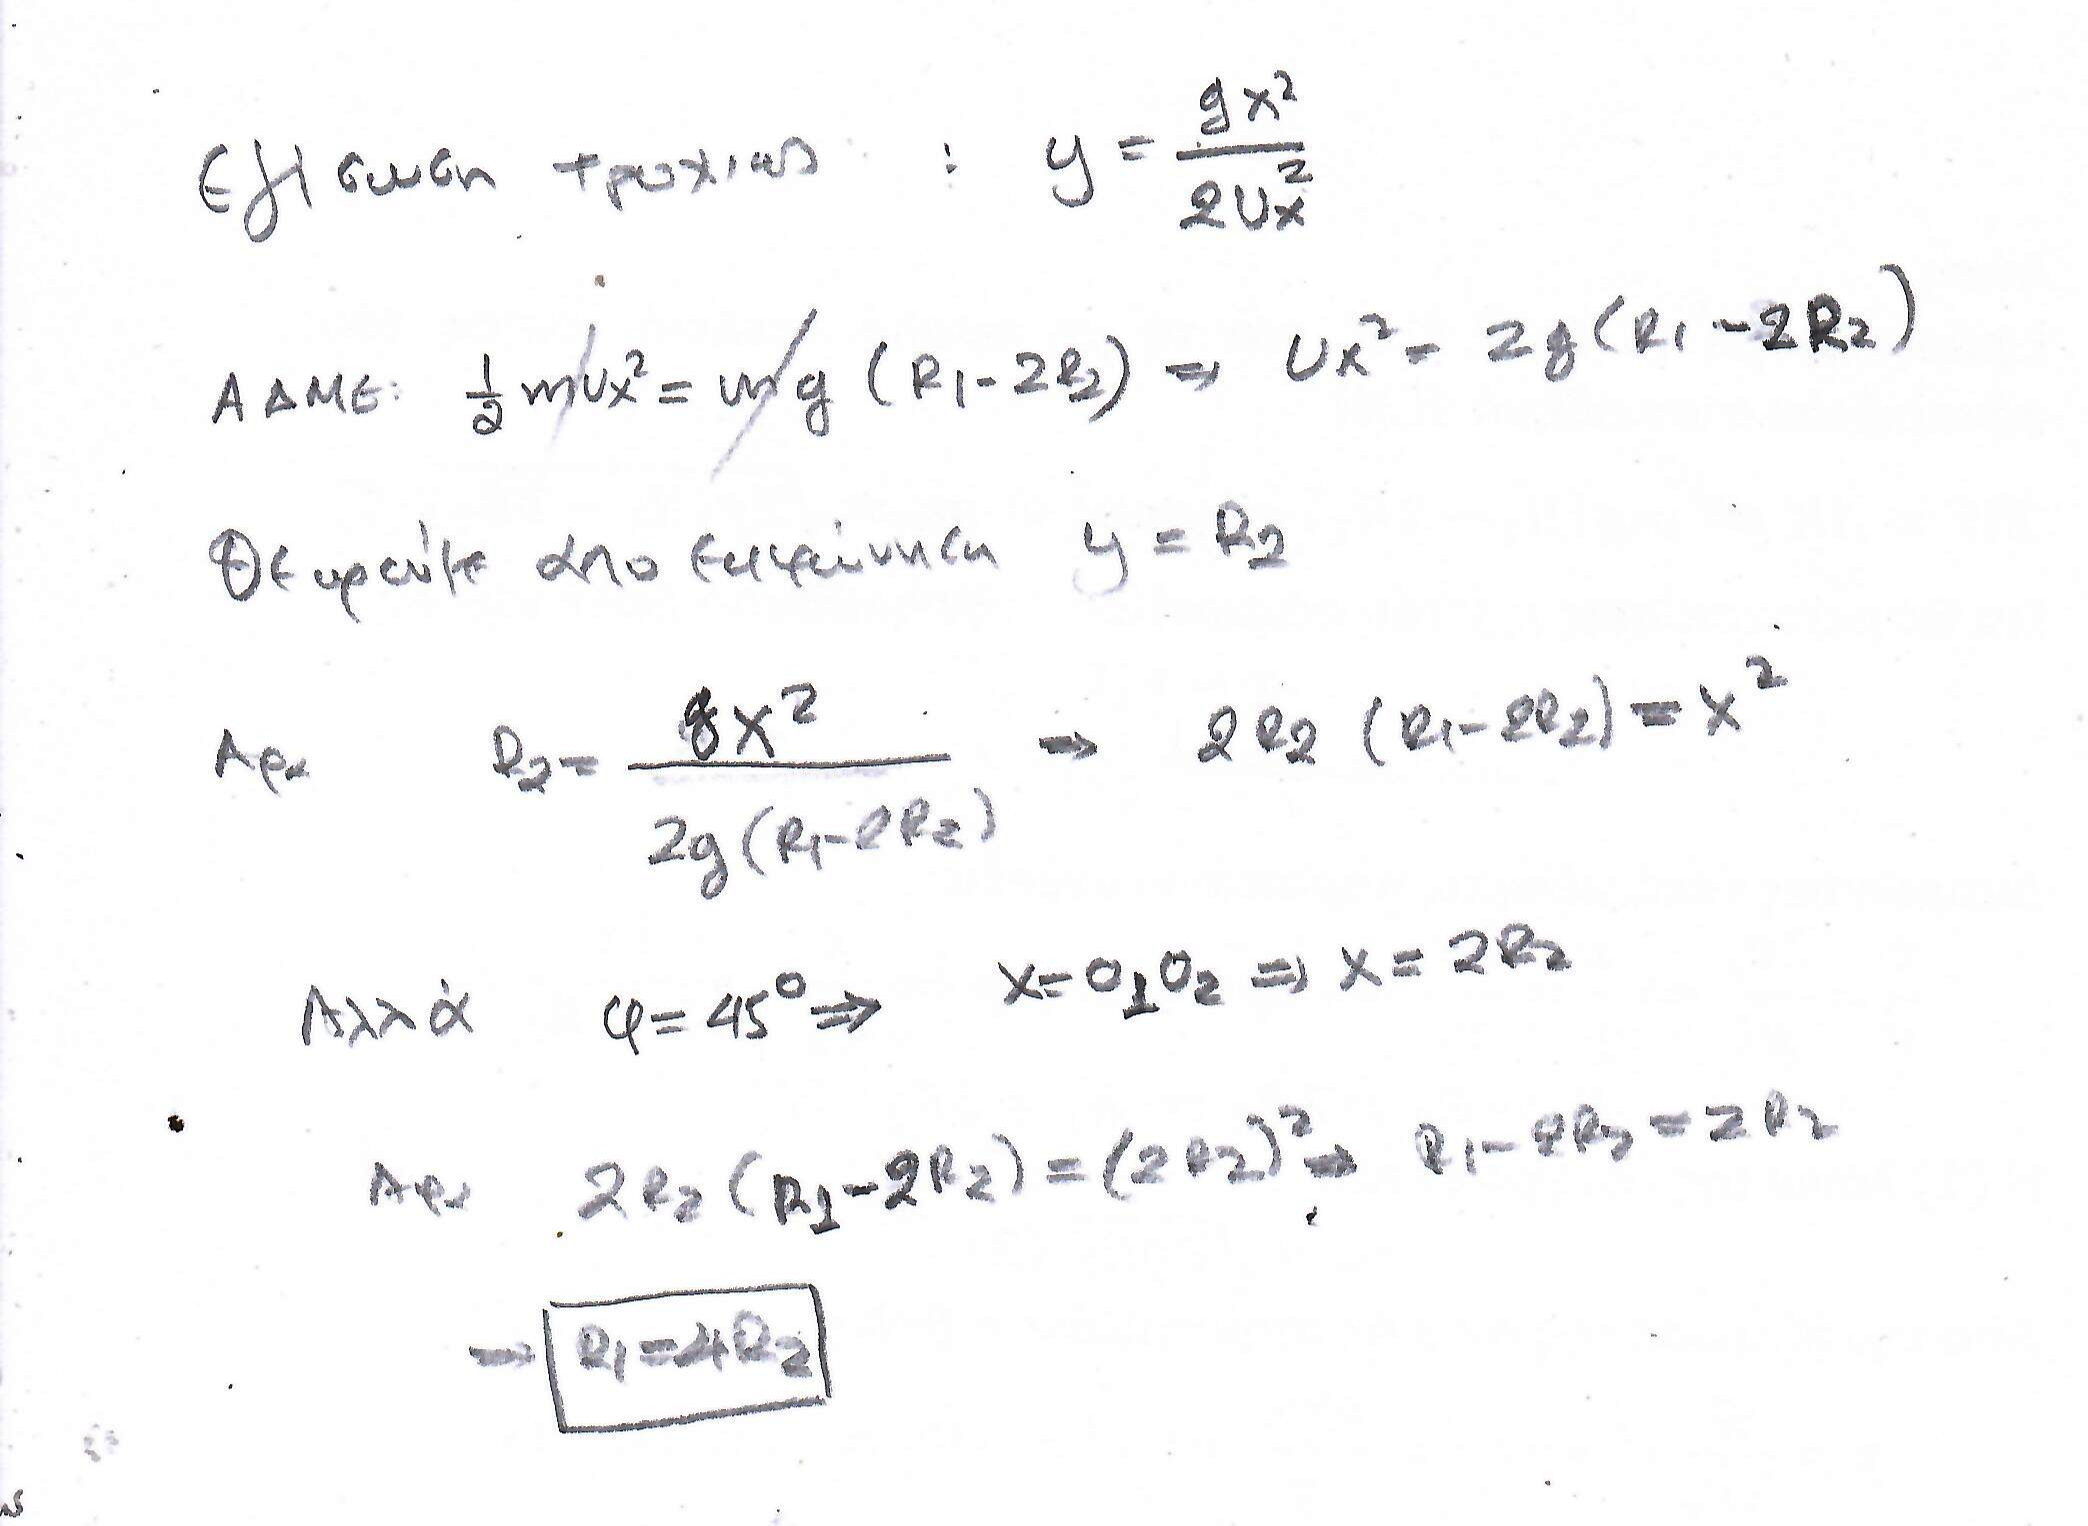 Εξίσωση τροχιάς : y = gx²/2Ux²
ΑΔΜΕ: 1/2 mUx² = mg (R1-2R2) ⇒ Ux² = 2g(R1-2R2)
Θεωρούμε από εκφώνηση y = R2
Άρα R2 = gx²/2g(R1-2R2) → 2R2 (R1-2R2) = x²
Αλλά φ = 45° ⇒ x = O1O2 ⇒ x = 2R2
Άρα 2R2 (R1-2R2) = (2R2)² → R1-2R2 = 2R2
→ R1 = 4R2